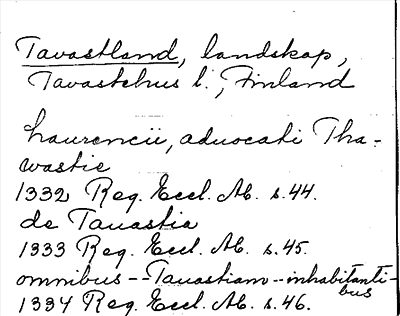 Tavastland, landskap,
Tavastehus l., Finland
Laurencii, aduocati Tha-
wastie
1332 Reg. Eccl. Ab. s. 44.
de Tauastia
1333 Reg. Eccl. Ab. s. 45.
omnibus -- Tauastiam -- inhabitanti-
bus
1334 Reg. Eccl. Ab. s. 46.